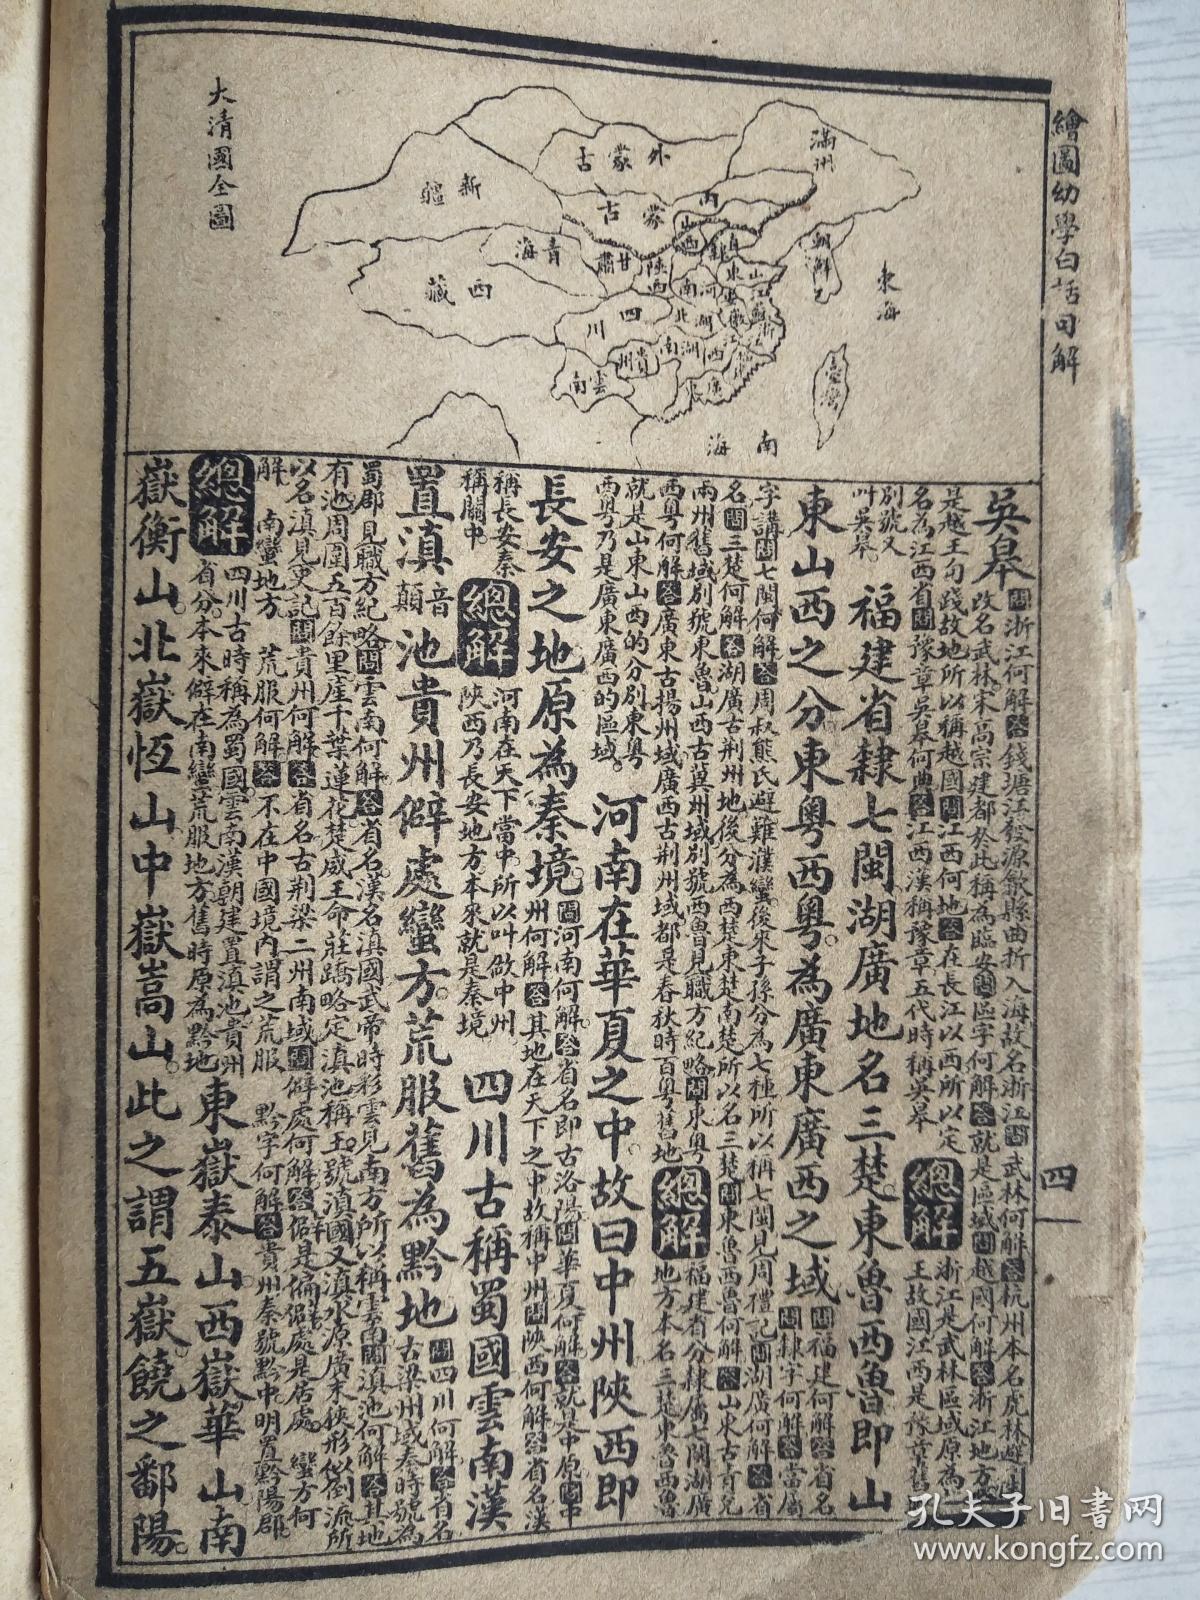 繪圖幼學白話句解
四
大清國全圖
滿州
外蒙古
內蒙古
新疆
青海
西藏
甘肅
陝西
山西
直隸
山東
河南
江蘇
安徽
浙江
湖北
湖南
江西
四川
貴州
雲南
廣西
朝鮮
東海
臺灣
南海
吳皋
問浙江何解答錢塘江發源歙縣曲折入海故名浙江問武林何解答杭州本名虎林避
改名武林宋高宗建都於此稱為臨安問區字何解答就是區域問越國何解答浙江地方
是越王句踐故地所以稱越國問江西何地答在長江以西所以定
名為江西省問豫章吳皋何典答江西漢稱豫章五代時稱吳皋
總解
浙江是武林區域原為
王故國江西是豫章舊
別號又
叫吳皋
福建省隸七閩湖廣地名三楚東魯西魯即山
東山西之分東粵西粵為廣東廣西之域
問福建何解答省名
問隸字何解答當屬
字講問七閩何解答周叔熊氏避難濮蠻後來子孫分為七種所以稱七閩見周禮記問湖廣何解答省
名問三楚何解答湖廣古荆州地後分為西楚東楚南楚所以名三楚問東魯西魯何解答山東古青兗
兩州舊域別號東魯山西古冀州域別號西魯見職方紀略問東粵
西粵何解答廣東古揚州域廣西古荆州域都是春秋時百粵舊地
總解
福建省分隸屬七閩湖廣
地方本名三楚東魯西魯
就是山東山西的分別東粵
西粵乃是廣東廣西的區域
河南在華夏之中故曰中州陝西即
長安之地原為秦境
問河南何解答省名即古洛陽問華夏何解答就是中原問中
州何解答其地在天下之中故稱中州問陝西何解答省名漢
稱長安秦
稱關中
總解
河南在天下當中所以叫做中州
陝西乃長安地方本來就是秦境
四川古稱蜀國雲南漢
置滇
音顛
池貴州僻處蠻方荒服舊為黔地
問四川何解答省名
古梁州域秦時號為
蜀郡見職方紀略問雲南何解答省名漢名滇國武帝時彩雲見南方所以稱雲南問滇池何解答其地
有池周圍五百餘里產千葉蓮花楚威王命莊蹻略定滇池稱王號滇國又滇水源廣末狹形似倒流所
以名滇見史記問貴州何解答省名古荆梁二州南域問僻處何解答僻是偏僻處是居處
蠻方何
解
南蠻地方
荒服何解答不在中國境內謂之荒服
黔字何解答貴州秦號黔中明置黔陽郡
總解
四川古時稱為蜀國雲南漢朝建置滇池貴州
省分本來僻在南蠻荒服地方舊時原為黔地
東嶽泰山西嶽華山南
嶽衡山北嶽恆山中嶽嵩山此之謂五嶽饒之鄱陽
孔夫子旧书网
www.kongfz.com